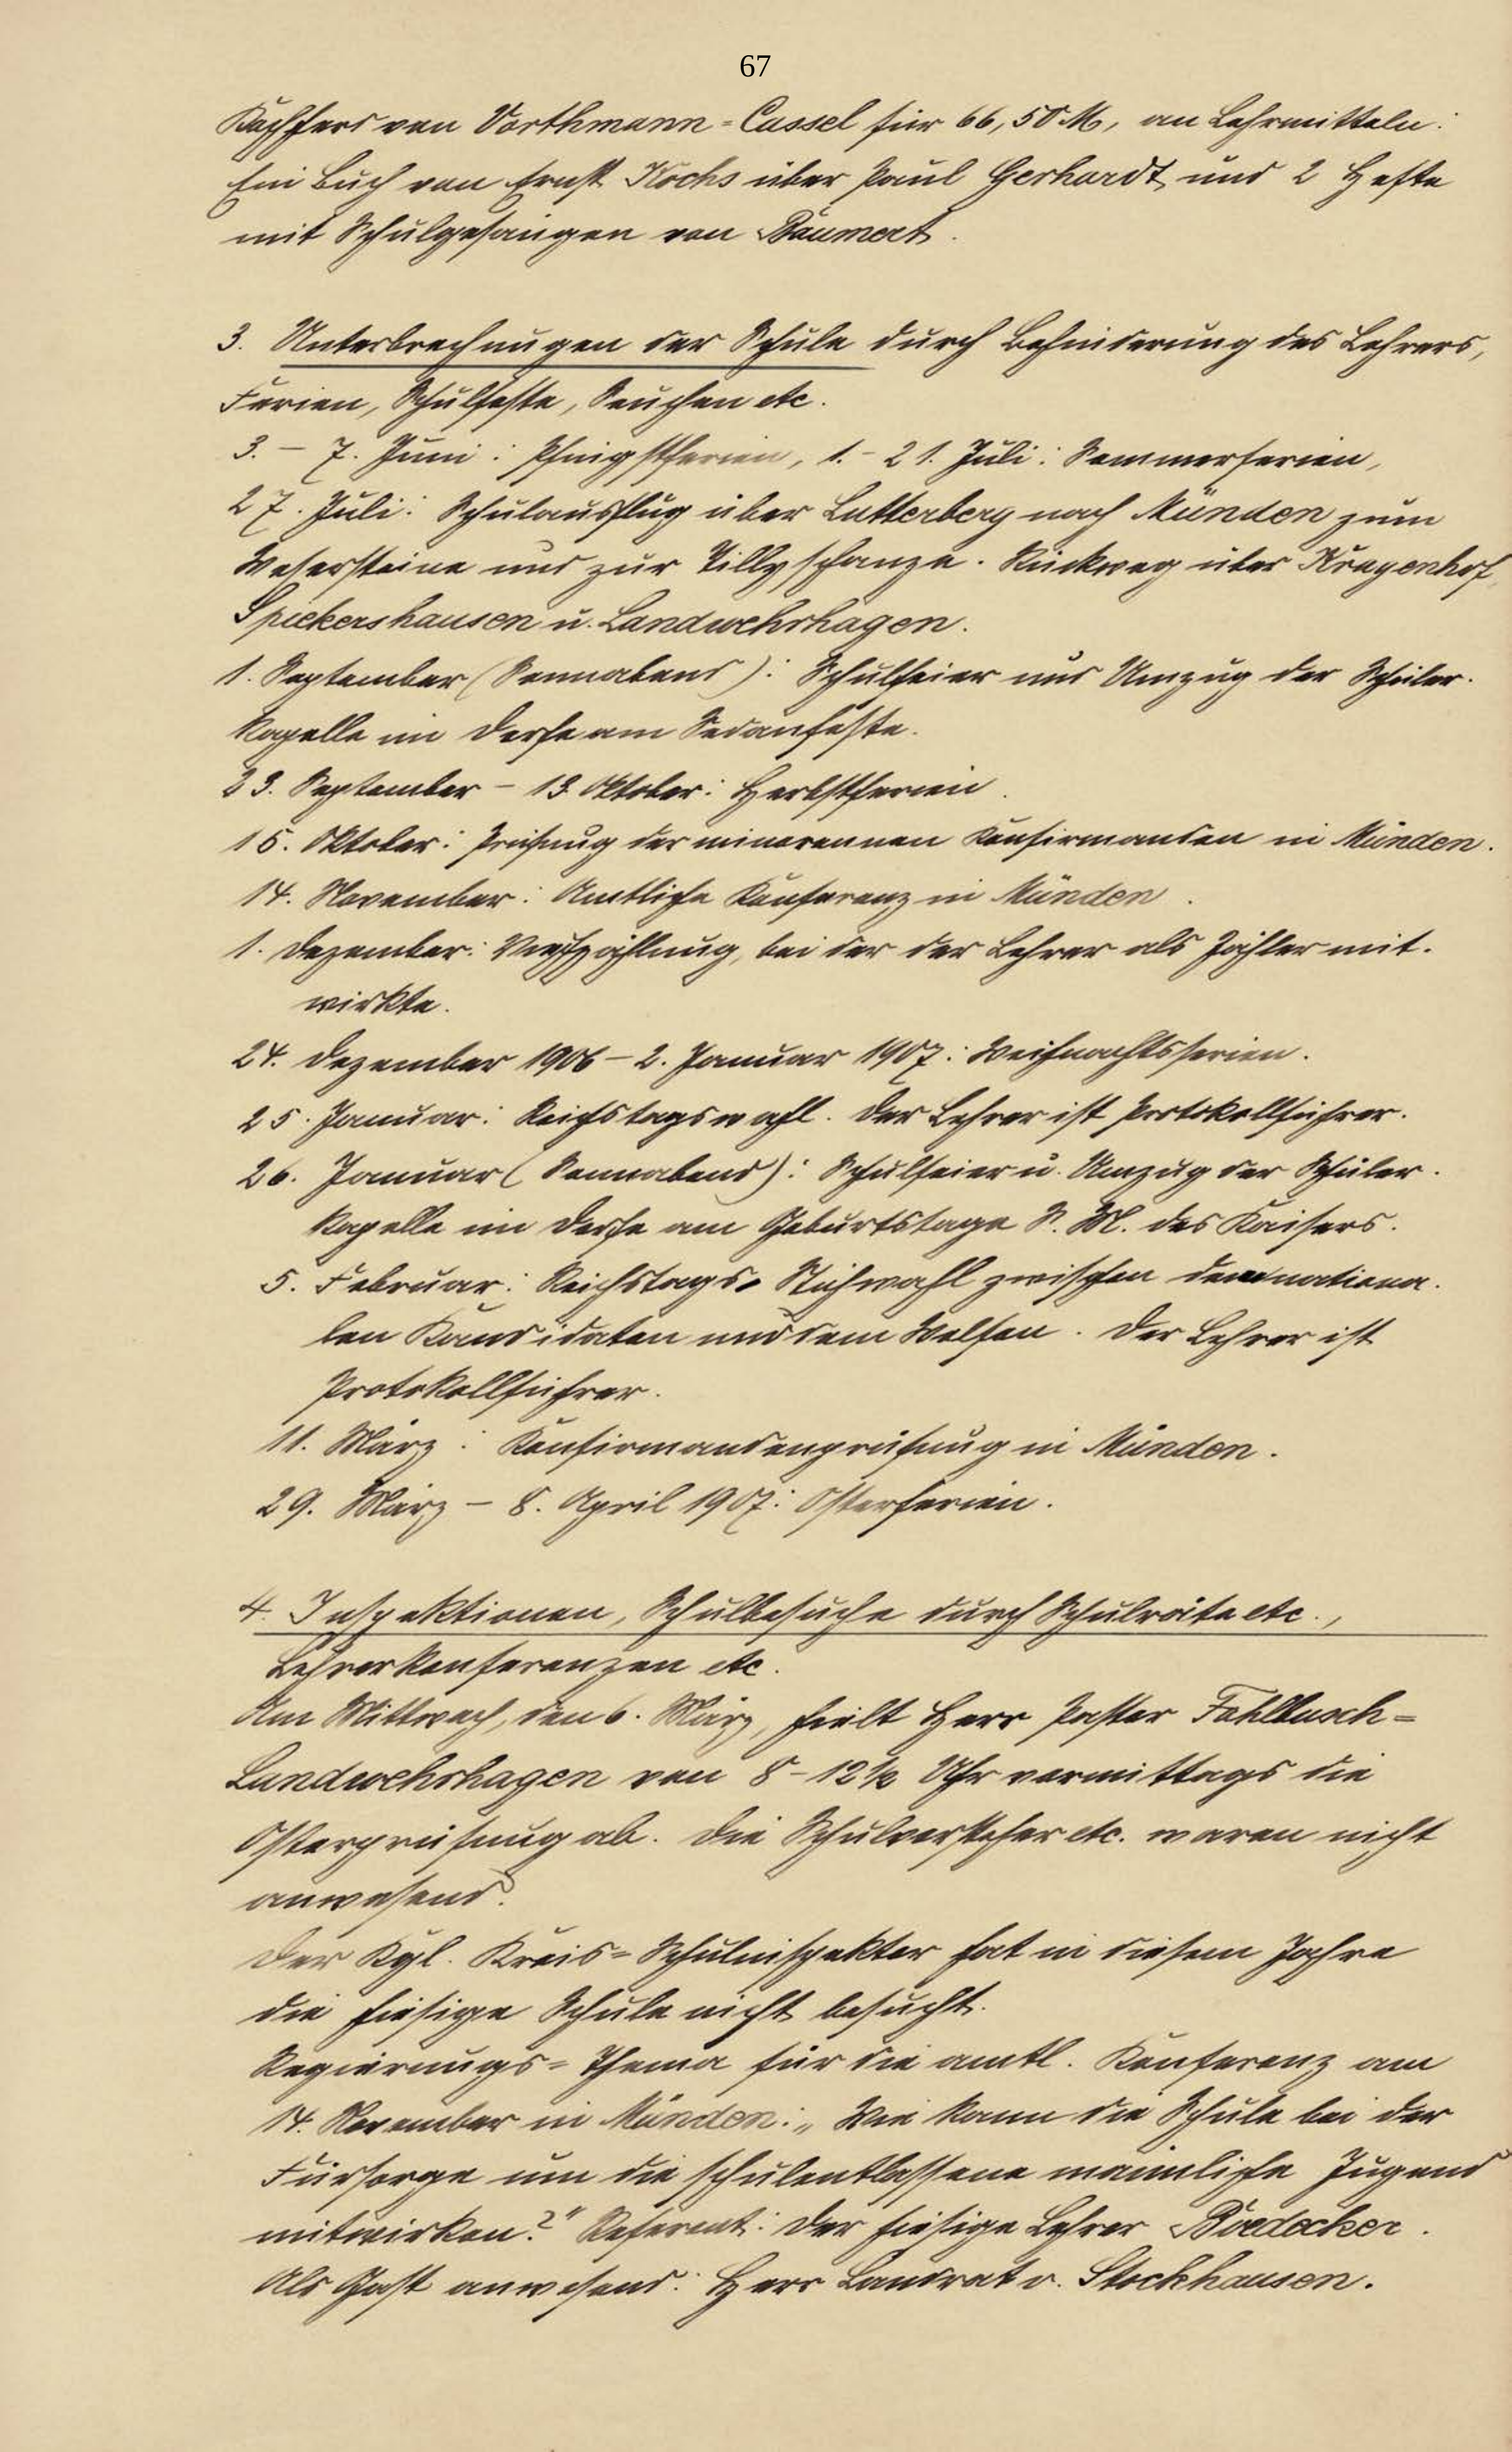 67
Kochherd von Vorthmann-Cassel für 66,50 M, an Lehrmitteln:
Ein Buch von Ernst Kochs über Paul Gerhardt und 2 Hefte
mit Schulgesängen von Baumert.
3. Unterbrechnugen der Schule durch Behinderung des Lehrers,
Ferien, Schulfeste, Seuchen etc.
3. – 7. Juni: Pfingstferien, 1. – 21. Juli: Sommerferien,
27. Juli: Schulausflug über Lutterberg nach Münden zum
Wesersteine und zur Tillyschanze. Rückweg über Kragenhof,
Spiekershausen u. Landwehrhagen.
1. September (Sonnabend): Schulfeier und Umzug der Schüler-
kapelle im Dorfe am Sedanfeste.
23. September – 13. Oktober: Herbstferien.
15. Oktober: Prüfung der minorennen Konfirmanden in Münden.
14. November: Amtliche Konferenz in Münden.
1. Dezember: Viehzählung, bei der der Lehrer als Zähler mit-
wirkte.
24. Dezember 1906 – 2. Januar 1907: Weihnachtsferien.
25. Januar: Reichstagswahl. Der Lehrer ist Protokollführer.
26. Januar (Sonnabend): Schulfeier u. Umzug der Schüler-
kapelle im Dorfe am Geburtstage S. M. des Kaisers.
5. Februar: Reichstags-Stichwahl zwischen dem nationa-
len Kandidaten und dem Welfen. Der Lehrer ist
Protokollführer.
11. März: Konfirmandenprüfung in Münden.
29. März – 8. April 1907: Osterferien.
4. Inspektionen, Schulbesuche durch Schulräte etc.,
Lehrerkonferenzen etc.
Am Mittwoch, den 6. März, hielt Herr Pastor Fahlbusch-
Landwehrhagen von 8–12½ Uhr vormittags die
Osterprüfung ab. Die Schulvorsteher etc. waren nicht
anwesend.
Der Kgl. Kreis-Schulinspektor hat in diesem Jahre
die hiesige Schule nicht besucht.
Regierungs-Thema für die amtl. Konferenz am
14. November in Münden: „Wie kann die Schule bei der
Fürsorge um die schulentlassene männliche Jugend
mitwirken?" Referent: Der hiesige Lehrer Boedecker.
Als Gast anwesend: Herr Landrat v. Stockhausen.